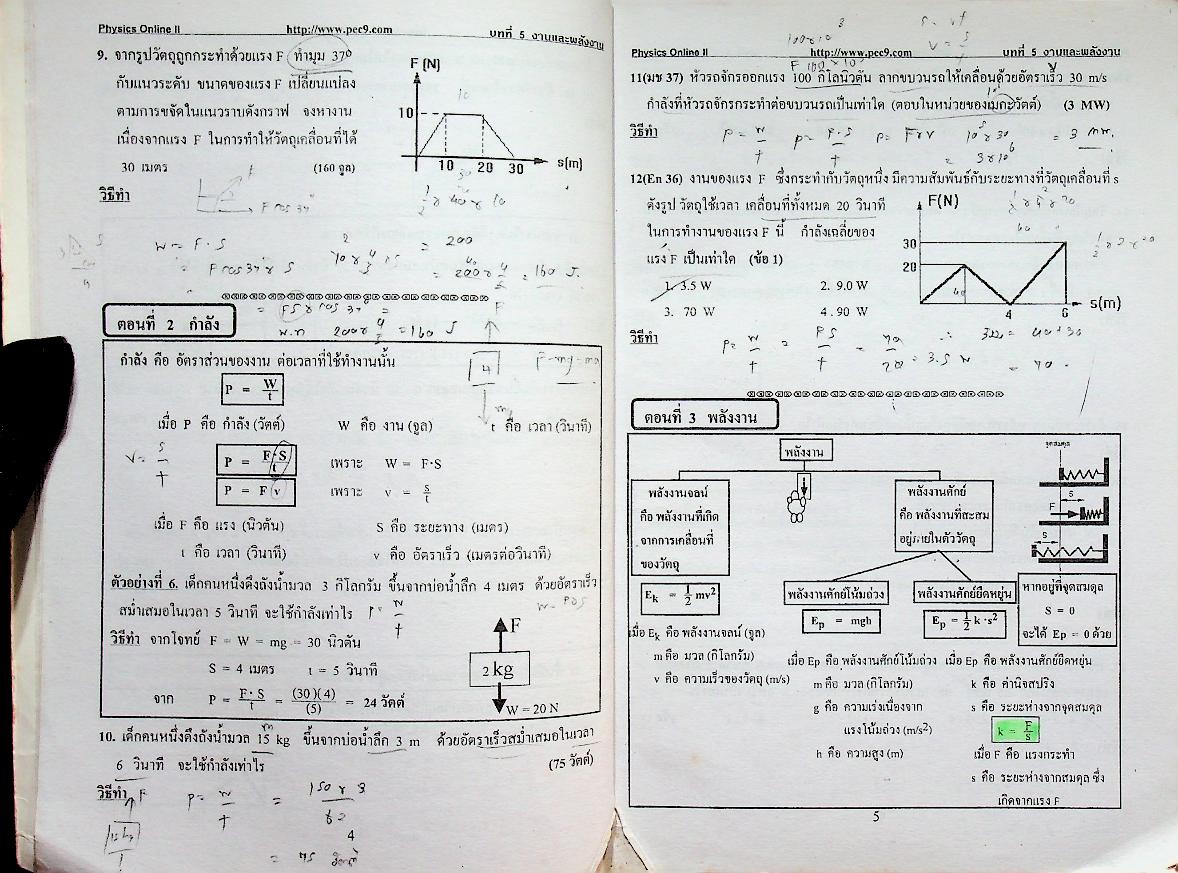 Physics Online II http://www.pec9.com บทที่ 5 งานและพลังงาน
9. จากรูปวัตถุถูกกระทำด้วยแรง F ทำมุม 37°
กับแนวระดับ ขนาดของแรง F เปลี่ยนแปลง
ตามการขจัดในแนวราบดังกราฟ จงหางาน
เนื่องจากแรง F ในการทำให้วัตถุเคลื่อนที่ได้
30 เมตร (160 จูล)
F (N)
10
10 20 30 s(m)
วิธีทำ
F cos 37°
W = F · S
= 200
= 160 J.
ตอนที่ 2 กำลัง
กำลัง คือ อัตราส่วนของงาน ต่อเวลาที่ใช้ทำงานนั้น
P = W/t
เมื่อ P คือ กำลัง (วัตต์) W คือ งาน (จูล) t คือ เวลา (วินาที)
P = F·S/t เพราะ W = F·S
P = F v เพราะ v = s/t
เมื่อ F คือ แรง (นิวตัน) S คือ ระยะทาง (เมตร)
t คือ เวลา (วินาที) v คือ อัตราเร็ว (เมตรต่อวินาที)
ตัวอย่างที่ 6. เด็กคนหนึ่งดึงถังน้ำมวล 3 กิโลกรัม ขึ้นจากบ่อน้ำลึก 4 เมตร ด้วยอัตราเร็ว
สม่ำเสมอในเวลา 5 วินาที จะใช้กำลังเท่าไร
วิธีทำ จากโจทย์ F = W = mg = 30 นิวตัน
S = 4 เมตร t = 5 วินาที
จาก P = F·S/t = (30)(4)/(5) = 24 วัตต์
F
2 kg
W = 20 N
10. เด็กคนหนึ่งดึงถังน้ำมวล 15 kg ขึ้นจากบ่อน้ำลึก 3 m ด้วยอัตราเร็วสม่ำเสมอในเวลา
6 วินาที จะใช้กำลังเท่าไร (75 วัตต์)
วิธีทำ
Physics Online II http://www.pec9.com บทที่ 5 งานและพลังงาน
11(มช 37) หัวรถจักรออกแรง 100 กิโลนิวตัน ลากขบวนรถให้เคลื่อนด้วยอัตราเร็ว 30 m/s
กำลังที่หัวรถจักรกระทำต่อขบวนรถเป็นเท่าใด (ตอบในหน่วยของเมกะวัตต์) (3 MW)
วิธีทำ
12(En 36) งานของแรง F ซึ่งกระทำกับวัตถุหนึ่ง มีความสัมพันธ์กับระยะทางที่วัตถุเคลื่อนที่ s
ดังรูป วัตถุใช้เวลา เคลื่อนที่ทั้งหมด 20 วินาที
ในการทำงานของแรง F นี้ กำลังเฉลี่ยของ
แรง F เป็นเท่าใด (ข้อ 1)
1. 3.5 W 2. 9.0 W
3. 70 W 4. 90 W
F(N)
30
20
4 6 s(m)
วิธีทำ
= 3.5 W
ตอนที่ 3 พลังงาน
พลังงาน
พลังงานจลน์
คือ พลังงานที่เกิด
จากการเคลื่อนที่
ของวัตถุ
Ek = 1/2 mv²
เมื่อ Ek คือ พลังงานจลน์ (จูล)
m คือ มวล (กิโลกรัม)
v คือ ความเร็วของวัตถุ (m/s)
พลังงานศักย์
คือ พลังงานที่สะสม
อยู่ภายในตัววัตถุ
พลังงานศักย์โน้มถ่วง
Ep = mgh
เมื่อ Ep คือ พลังงานศักย์โน้มถ่วง
m คือ มวล (กิโลกรัม)
g คือ ความเร่งเนื่องจาก
แรงโน้มถ่วง (m/s²)
h คือ ความสูง (m)
พลังงานศักย์ยืดหยุ่น
Ep = 1/2 k·s²
เมื่อ Ep คือ พลังงานศักย์ยืดหยุ่น
k คือ ค่านิจสปริง
s คือ ระยะห่างจากจุดสมดุล
k = F/s
เมื่อ F คือ แรงกระทำ
s คือ ระยะห่างจากสมดุล ซึ่ง
เกิดจากแรง F
จุดสมดุล
s
F
s
หากอยู่ที่จุดสมดุล
S = 0
จะได้ Ep = 0 ด้วย
5